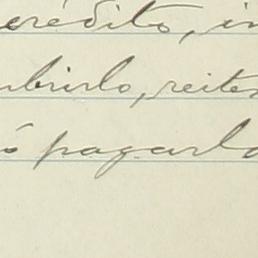 crédito, in
ubrirlo, reiter
ó pagarlo